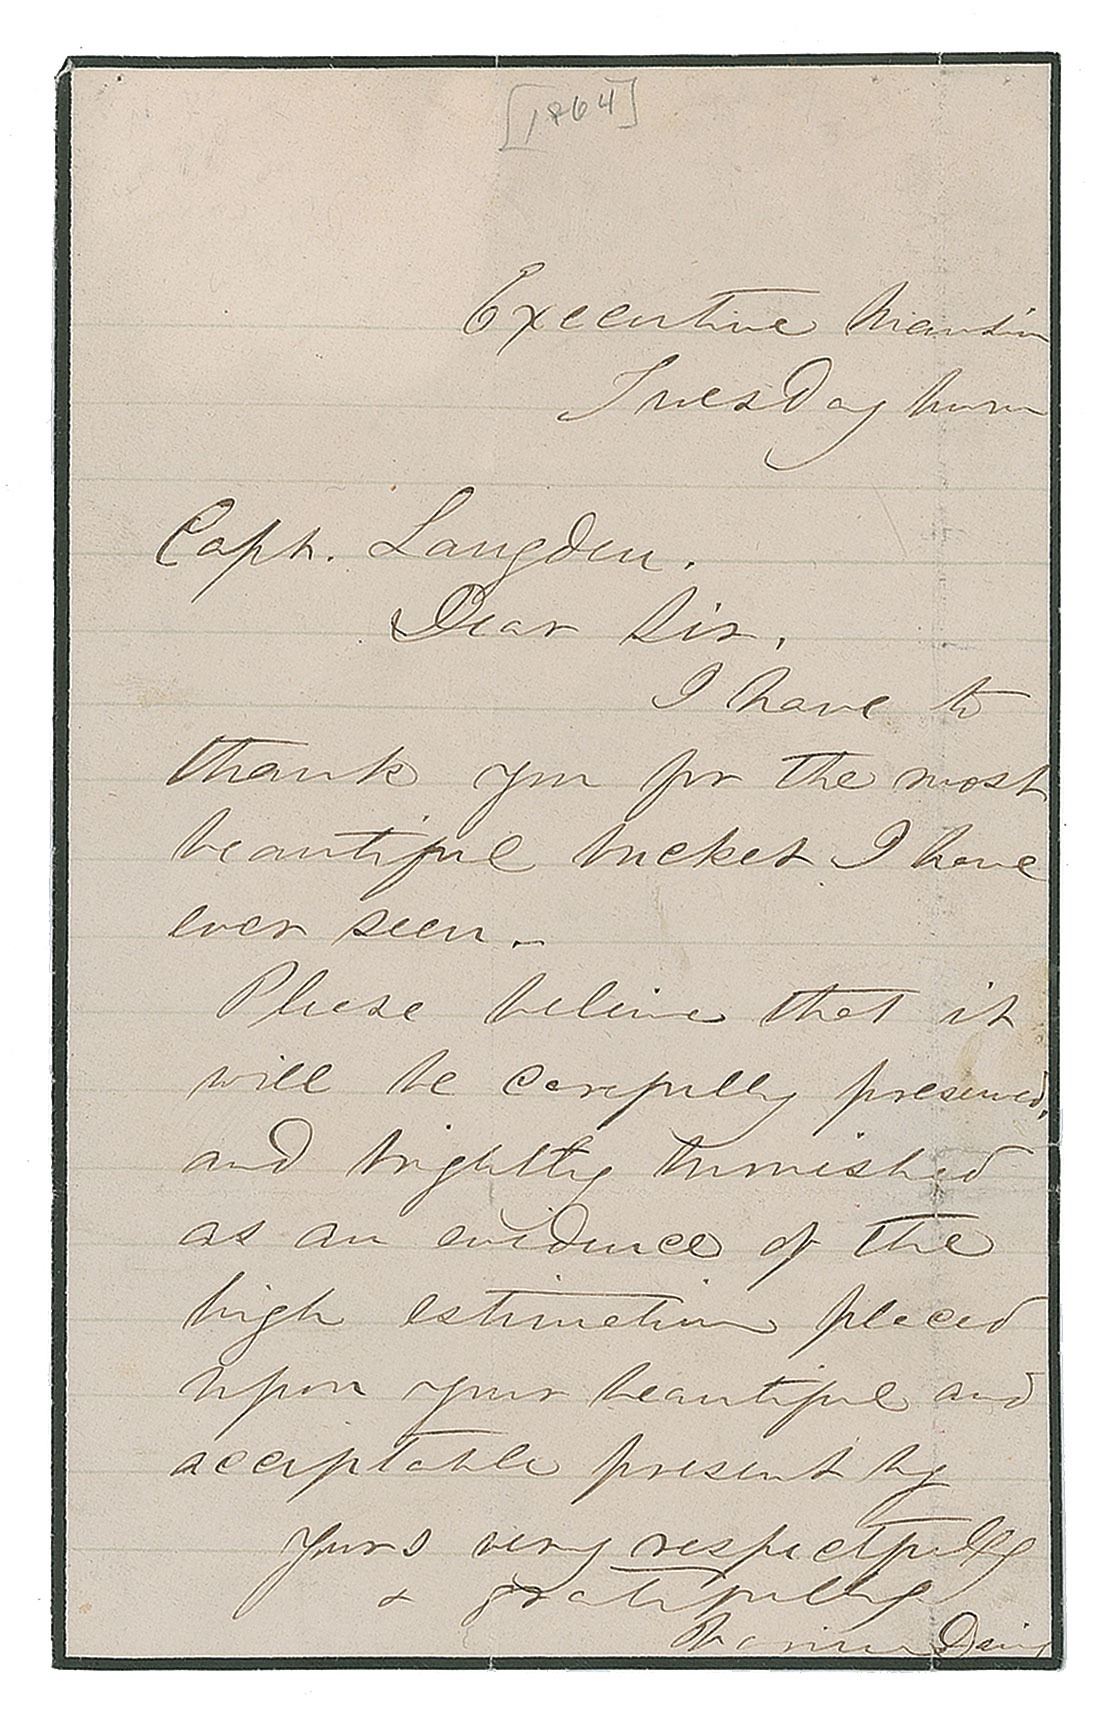 [1864]
Executive Mansion
Tuesday morn
Capt. Langden.
Dear Sir,
I have to
thank you for the most
beautiful bucket I have
ever seen _
Please believe that it
will be carefully preserved,
and brightly burnished
as an evidence of the
high estimation placed
upon your beautiful and
acceptable present by
yours very respectfully
& gratefully
Varina Davis